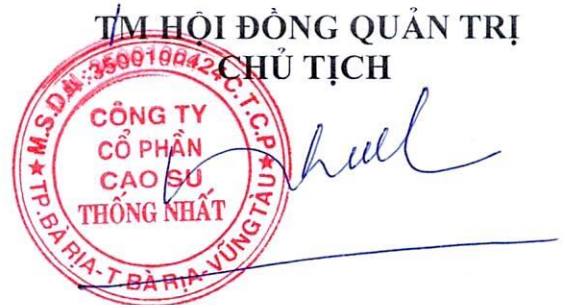 TM HỘI ĐỒNG QUẢN TRỊ
CHỦ TỊCH
M.S.D.N: 3500100424 C.T.C.P
CÔNG TY
CỔ PHẦN
CAO SU
THỐNG NHẤT
TP. BÀ RỊA-T BÀ RỊA-VŨNG TÀU